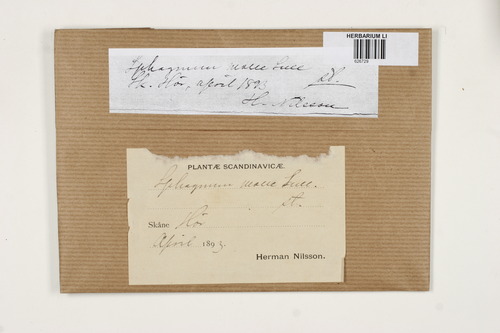 HERBARIUM LI
Sphagnum molle Sull.
Sk. Hör, april 1893
H. Nilsson
PLANTÆ SCANDINAVICÆ.
Sphagnum molle Sull.
st.
Skåne Hör
April 1893.
Herman Nilsson.